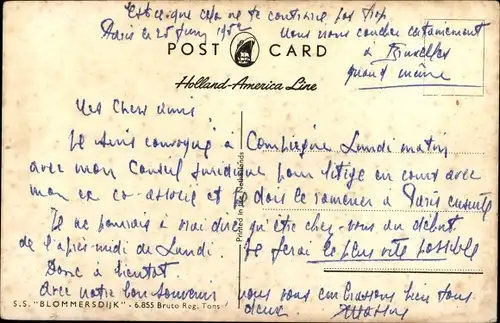 Est-ce que cela ne te contrarie pas trop
Paris le 25 Juin 195
Nous nous coucherons certainement
à
Bruxelles
quand même
POST CARD
Holland-America Line
Mes Chers amis,
Je suis convoqué à Compiègne Lundi matin
avec mon Conseil Juridique pour litige en cours avec
mon ex co-associé et je dois le ramener à Paris ensuite
Je ne pourrais à vrai dire qu'être chez vous au début
de l'après-midi de Lundi. Je ferai le plus vite possible
Donc à bientôt
avec notre bon souvenir nous vous embrassons bien tous
deux
Printed in the Netherlands
S.S. "BLOMMERSDIJK" - 6.855 Bruto Reg. Tons